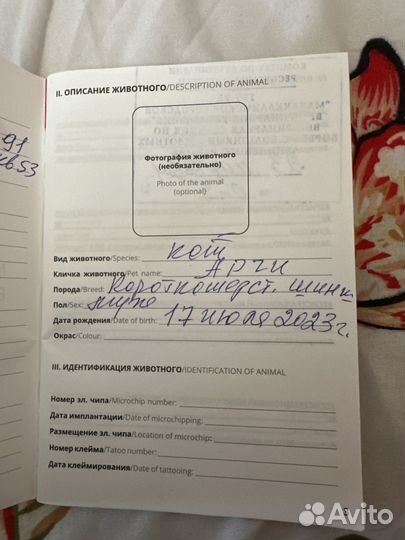 91
53
II. ОПИСАНИЕ ЖИВОТНОГО/DESCRIPTION OF ANIMAL
Фотография животного
(необязательно)
Photo of the animal
(optional)
Вид животного/Species: кот
Кличка животного/Pet name: АРЧИ
Порода/Breed: Короткошерст. шинш.
Пол/Sex: муж
Дата рождения/Date of birth: 17 июля 2023 г.
Окрас/Colour:
III. ИДЕНТИФИКАЦИЯ ЖИВОТНОГО/IDENTIFICATION OF ANIMAL
Номер эл. чипа/Microchip number:
Дата имплантации/Date of microchipping:
Размещение эл. чипа/Location of microchip:
Номер клейма/Tatoo number:
Дата клеймирования/Date of tattooing:
Avito